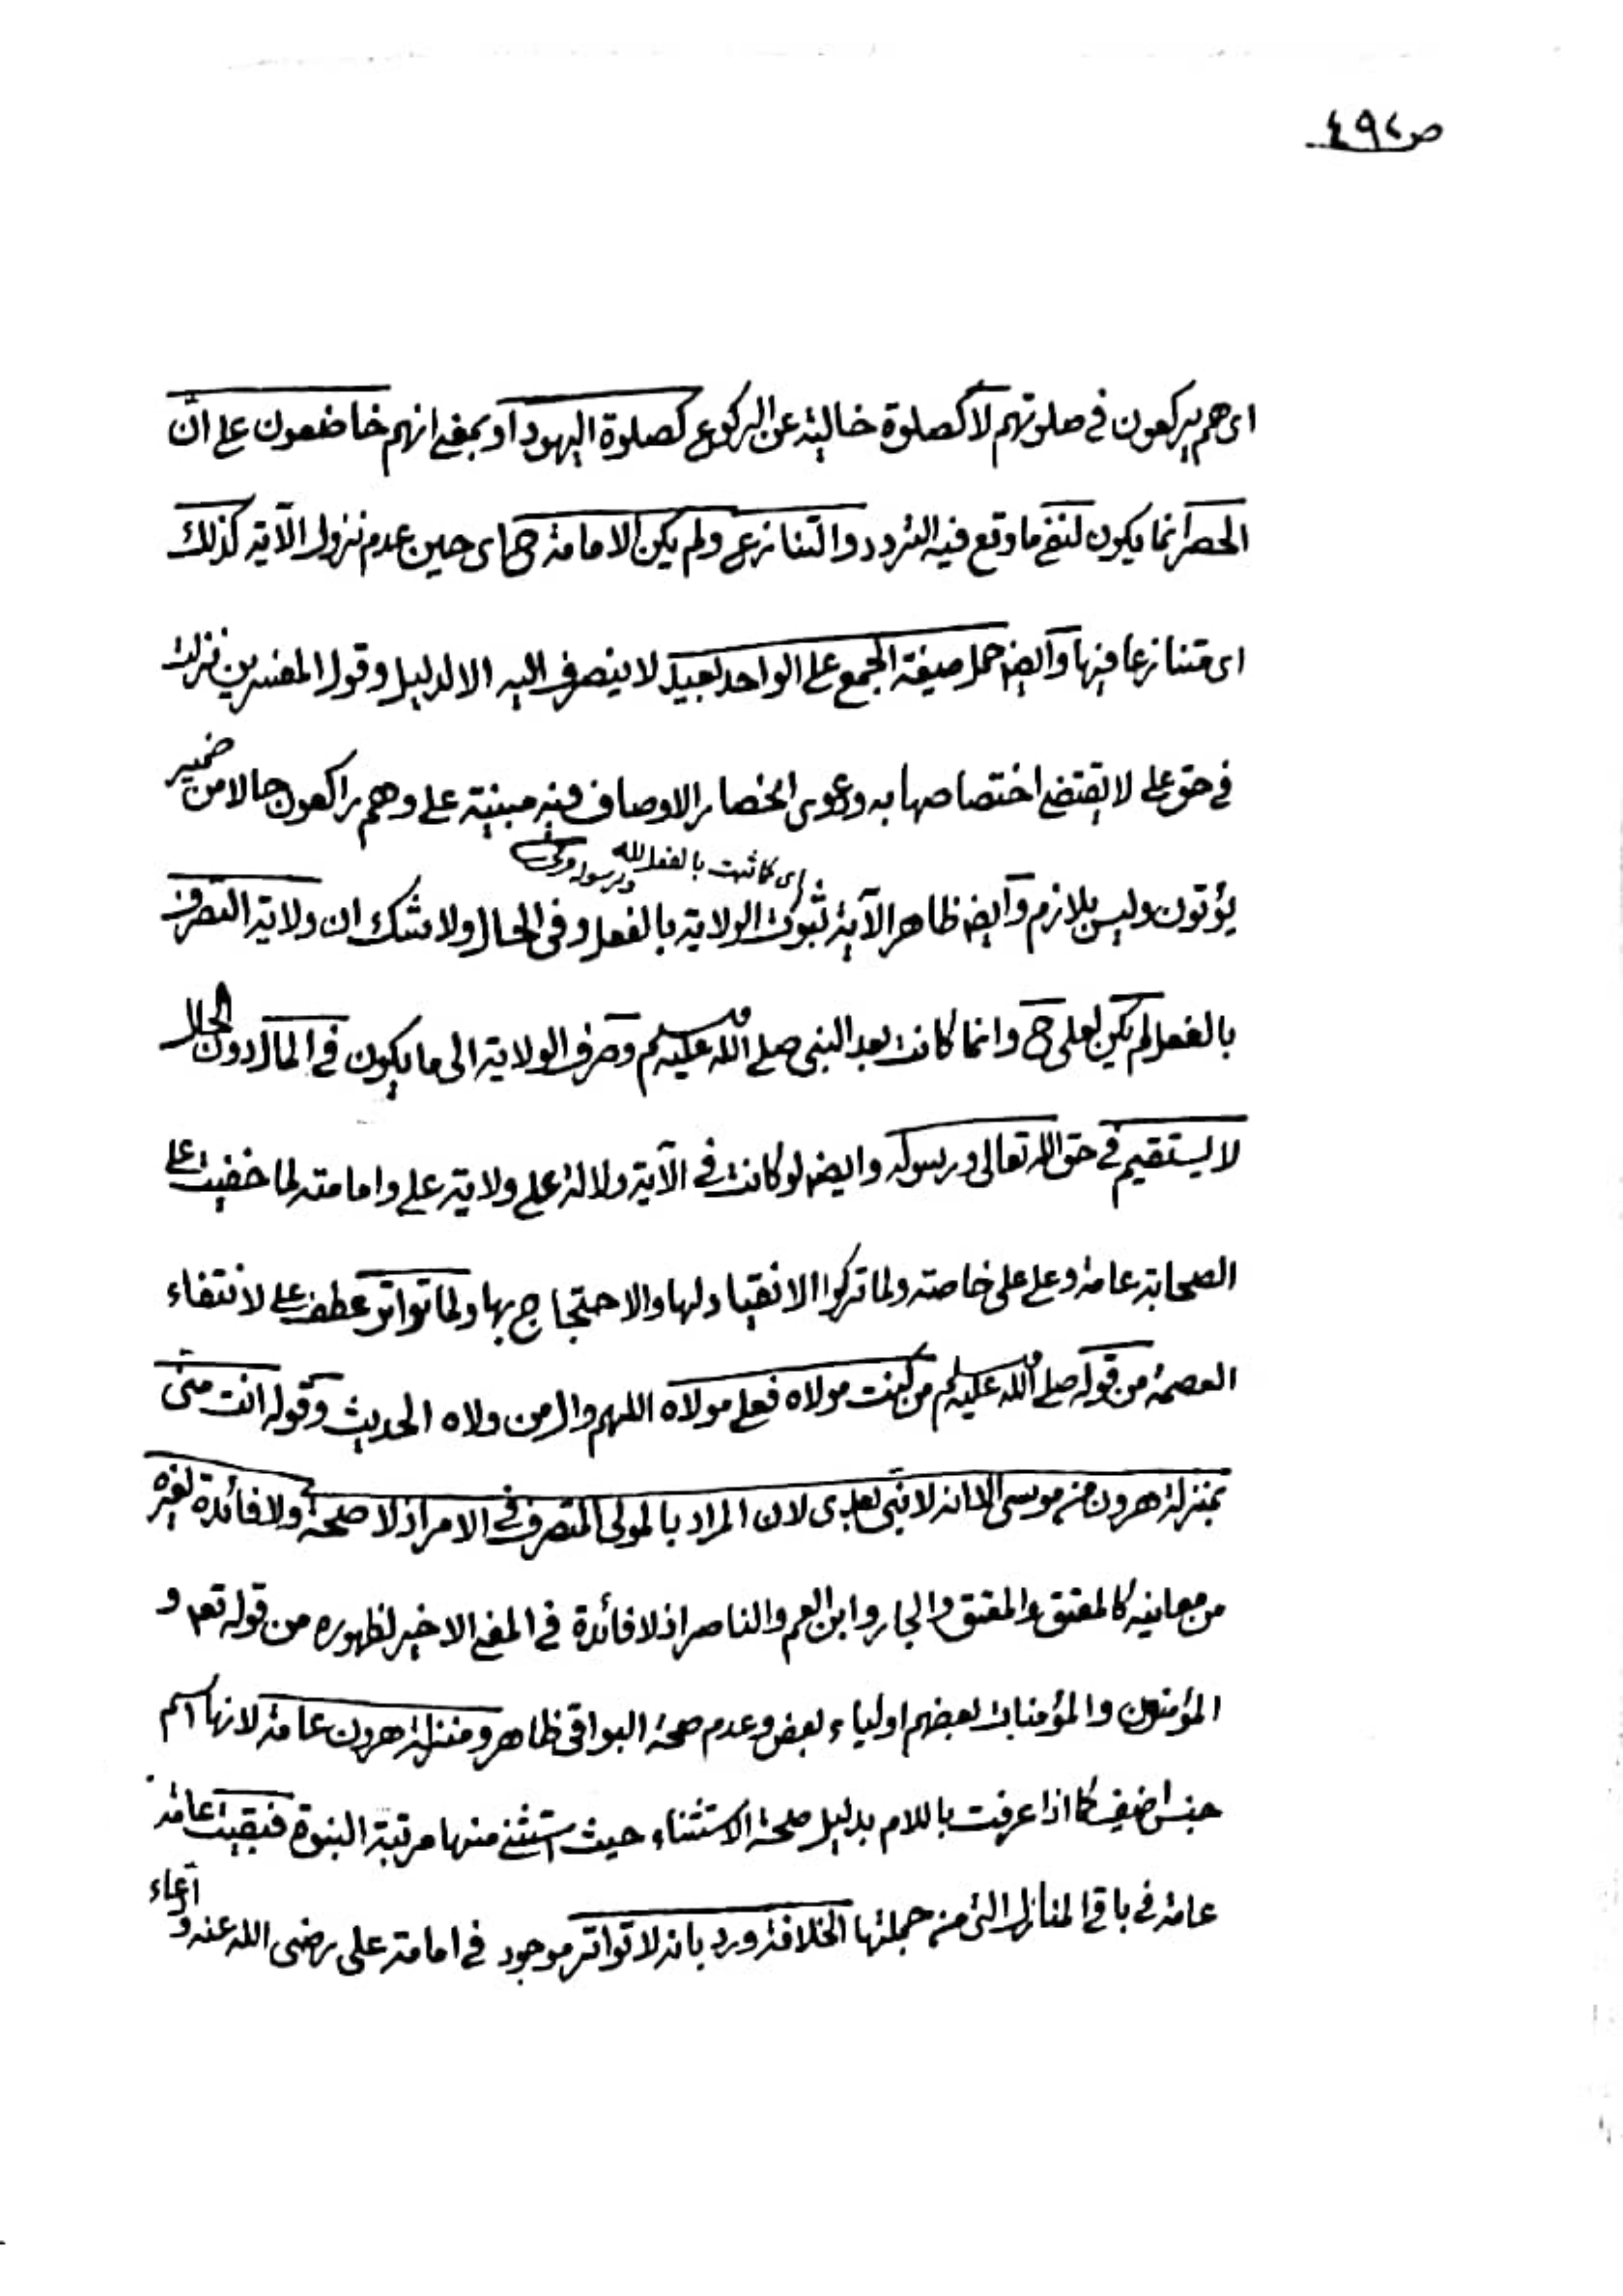 ص٤٩٢
اى هم يركعون فى صلوتهم لا كصلوة خالية عن الركوع كصلوة اليهود او بمعنى انهم خاضعون على ان
الحصر انما يكون لنفى ما وقع فيه التردد والتنازع ولم يكن الامامة ح اى حين عدم نزول الآية كذلك
اى متنازعا فيها وآيضا حمل صيغة الجمع على الواحد بعيد لا ينصرف اليه الا لدليل وقول المفسرين نزلت
فى حق على لا يقتضى اختصاصها به ودعوى انحصار الاوصاف فيه مبنية على وهم راكعون حالا من ضمير
يؤتون وليس بلازم وآيضا ظاهر الآية ثبوت الولاية بالفعل وفى الحال ولا شك ان ولاية التصرف
اى كما ثبت بالفعل لله ورسوله
بالفعل لم يكن لعلى ح وانما كانت بعد النبى صلى الله عليه وسلم وصرف الولاية الى ما يكون فى المآل دون الحال
لا يستقيم فى حق الله تعالى ورسوله وايضا لو كانت فى الآية دلالة على ولاية على وامامته لما خفيت على
الصحابة عامة وعلى على خاصته ولما تركوا الانقياد لها والاحتجاج بها ولما تواتر عطف على لانتفاء
العصمة من قوله صلى الله عليه وسلم من كنت مولاه فعلى مولاه اللهم وال من ولاه الحديث وقوله انت منى
بمنزلة هرون من موسى الا انه لا نبى بعدى لان المراد بالمولى المتصرف فى الامر اذ لا صحة ولا فائدة لغيره
من معانيه كالمعتق والمعتق والجار وابن العم والناصر اذ لا فائدة فى المعنى الاخير لظهوره من قوله تعم و
المؤمنون والمؤمنات بعضهم اولياء بعض وعدم صحة البواقى ظاهر ومنزلة هرون عامة لانها اسم
جنس اضيف كما اذا عرفت باللام بدليل صحة الاستثناء حيث استثنى منها مرتبة النبوة فبقيت عامة
عامة فى باقى المنازل التى من جملتها الخلافة ورد بانه لا تواتر موجود فى امامة على رضى الله عنه و ادعاء